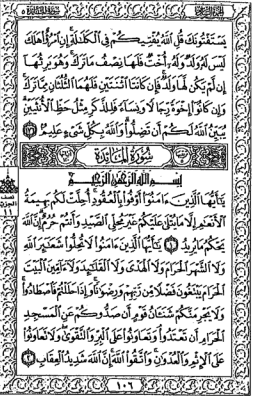 يَسْتَفْتُونَكَ قُلِ ٱللَّهُ يُفْتِيكُمْ فِي ٱلْكَلَٰلَةِ إِنِ ٱمْرُؤٌا۟ هَلَكَ
لَيْسَ لَهُۥ وَلَدٌ وَلَهُۥٓ أُخْتٌ فَلَهَا نِصْفُ مَا تَرَكَ وَهُوَ يَرِثُهَآ
إِن لَّمْ يَكُن لَّهَا وَلَدٌ فَإِن كَانَتَا ٱثْنَتَيْنِ فَلَهُمَا ٱلثُّلُثَانِ مِمَّا تَرَكَ
وَإِن كَانُوٓا۟ إِخْوَةً رِّجَالًا وَنِسَآءً فَلِلذَّكَرِ مِثْلُ حَظِّ ٱلْأُنثَيَيْنِ
يُبَيِّنُ ٱللَّهُ لَكُمْ أَن تَضِلُّوا۟ وَٱللَّهُ بِكُلِّ شَىْءٍ عَلِيمٌۢ ١٧٦
سُورَةُ المَائدَة
بِسْمِ ٱللَّهِ ٱلرَّحْمَٰنِ ٱلرَّحِيمِ
يَٰٓأَيُّهَا ٱلَّذِينَ ءَامَنُوٓا۟ أَوْفُوا۟ بِٱلْعُقُودِ أُحِلَّتْ لَكُم بَهِيمَةُ
ٱلْأَنْعَٰمِ إِلَّا مَا يُتْلَىٰ عَلَيْكُمْ غَيْرَ مُحِلِّى ٱلصَّيْدِ وَأَنتُمْ حُرُمٌ إِنَّ ٱللَّهَ
يَحْكُمُ مَا يُرِيدُ ١ يَٰٓأَيُّهَا ٱلَّذِينَ ءَامَنُوا۟ لَا تُحِلُّوا۟ شَعَٰٓئِرَ ٱللَّهِ
وَلَا ٱلشَّهْرَ ٱلْحَرَامَ وَلَا ٱلْهَدْىَ وَلَا ٱلْقَلَٰٓئِدَ وَلَآ ءَآمِّينَ ٱلْبَيْتَ
ٱلْحَرَامَ يَبْتَغُونَ فَضْلًا مِّن رَّبِّهِمْ وَرِضْوَٰنًا وَإِذَا حَلَلْتُمْ فَٱصْطَادُوا۟
وَلَا يَجْرِمَنَّكُمْ شَنَـَٔانُ قَوْمٍ أَن صَدُّوكُمْ عَنِ ٱلْمَسْجِدِ
ٱلْحَرَامِ أَن تَعْتَدُوا۟ وَتَعَاوَنُوا۟ عَلَى ٱلْبِرِّ وَٱلتَّقْوَىٰ وَلَا تَعَاوَنُوا۟
عَلَى ٱلْإِثْمِ وَٱلْعُدْوَٰنِ وَٱتَّقُوا۟ ٱللَّهَ إِنَّ ٱللَّهَ شَدِيدُ ٱلْعِقَابِ ٢
نصف
الحزب
١١
١٠٦